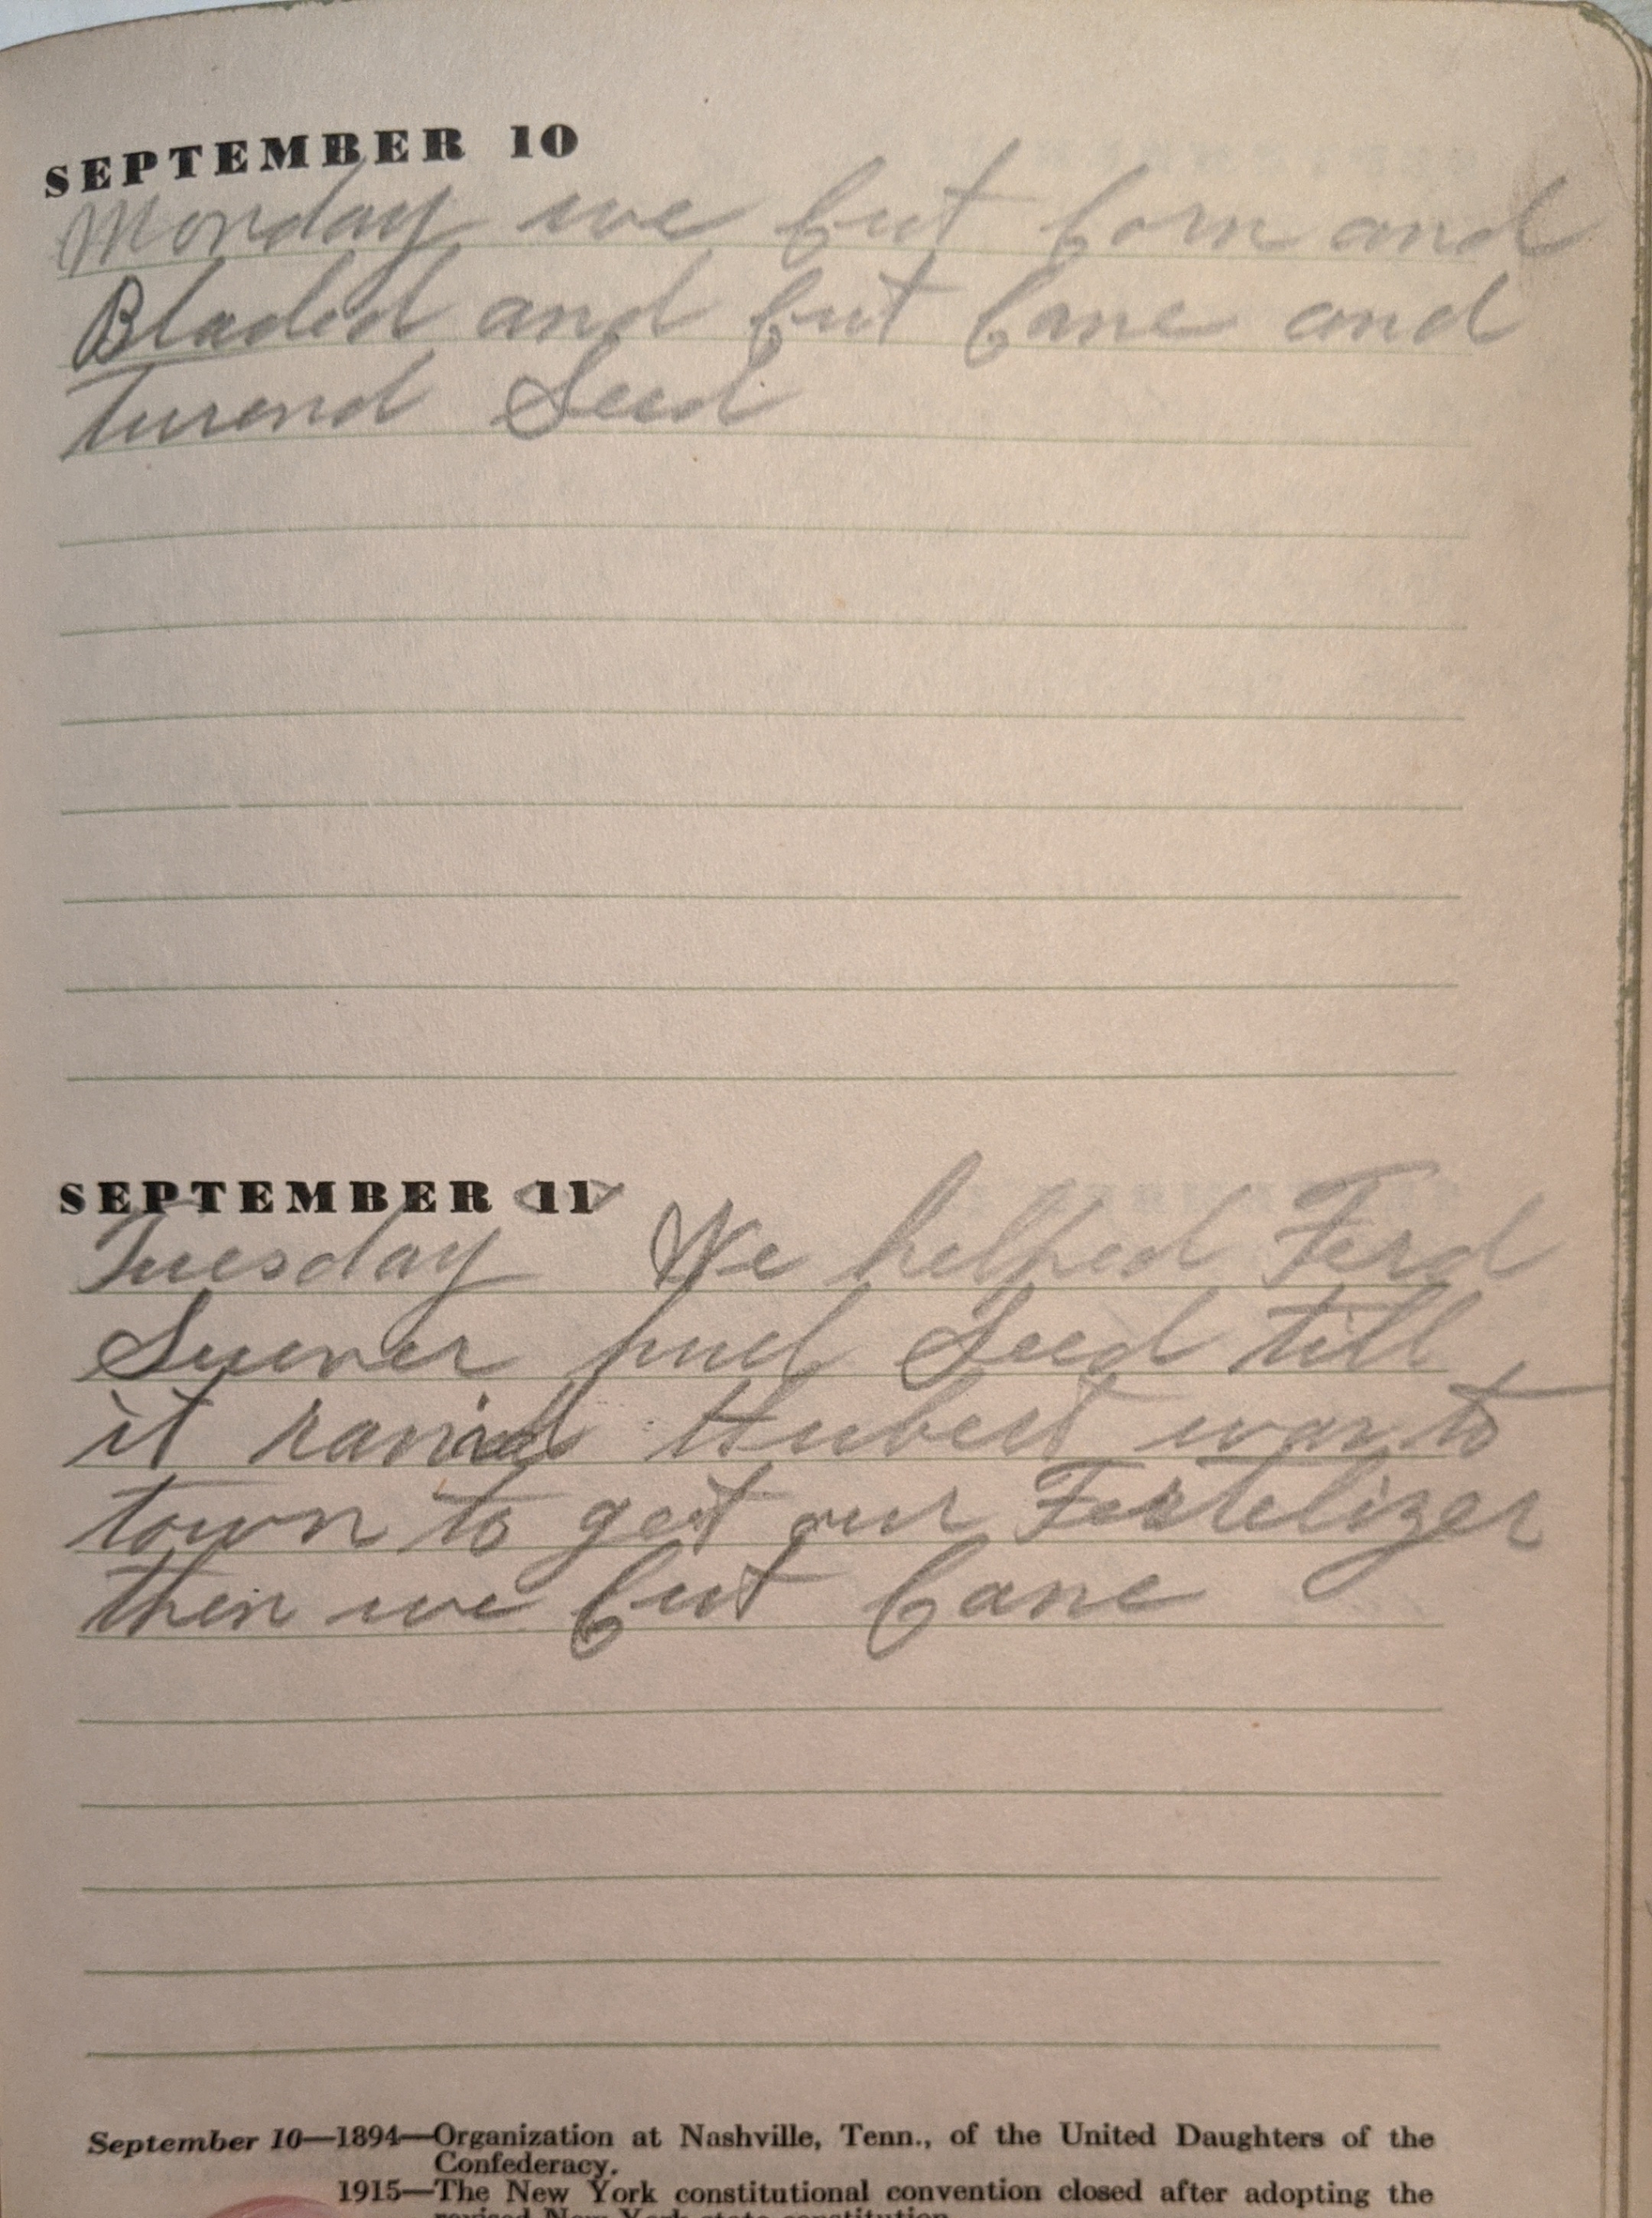 SEPTEMBER 10
Monday we Cut Corn and
Bladed and Cut Cane and
turend Seed
SEPTEMBER 11
Tuesday We helped Ferd
Suever Seed till
it Hubert to
town to get our Fertelizer
then we Cut Cane
September 10—1894—Organization at Nashville, Tenn., of the United Daughters of the
Confederacy.
1915—The New York constitutional convention closed after adopting the
revised New York state constitution.